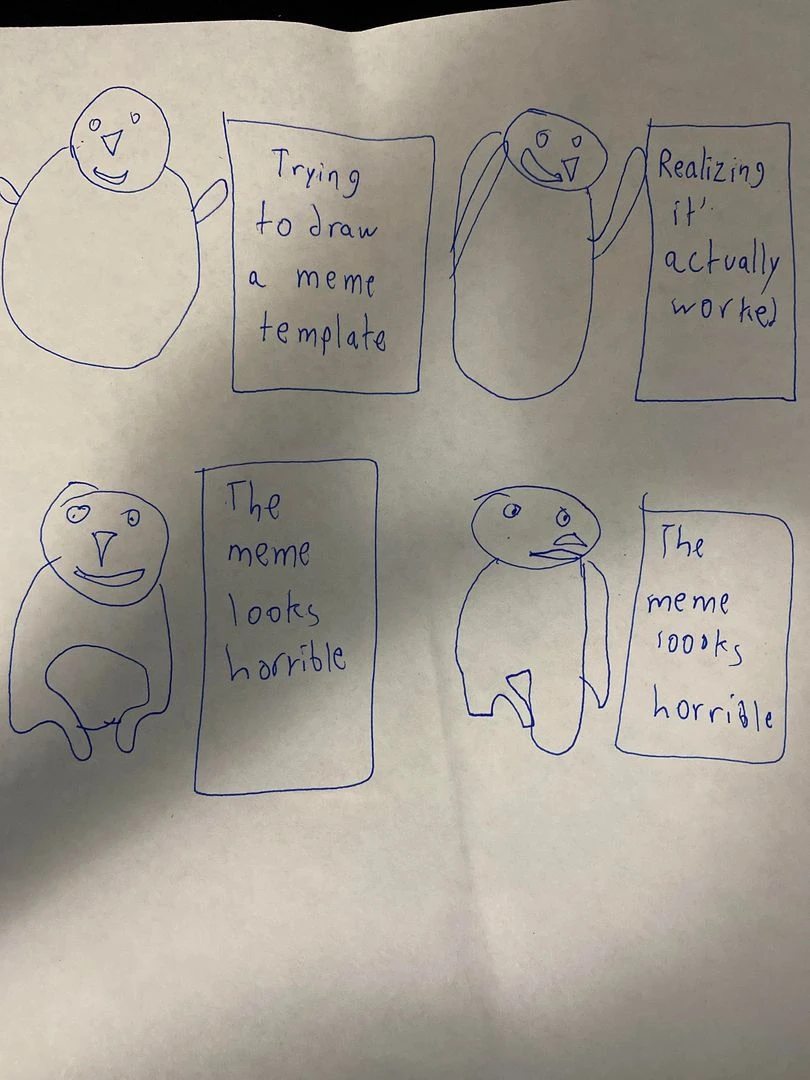 Trying
to draw
a meme
template
Realizing
it'
actually
worked
The
meme
looks
horrible
The
meme
looks
horrible